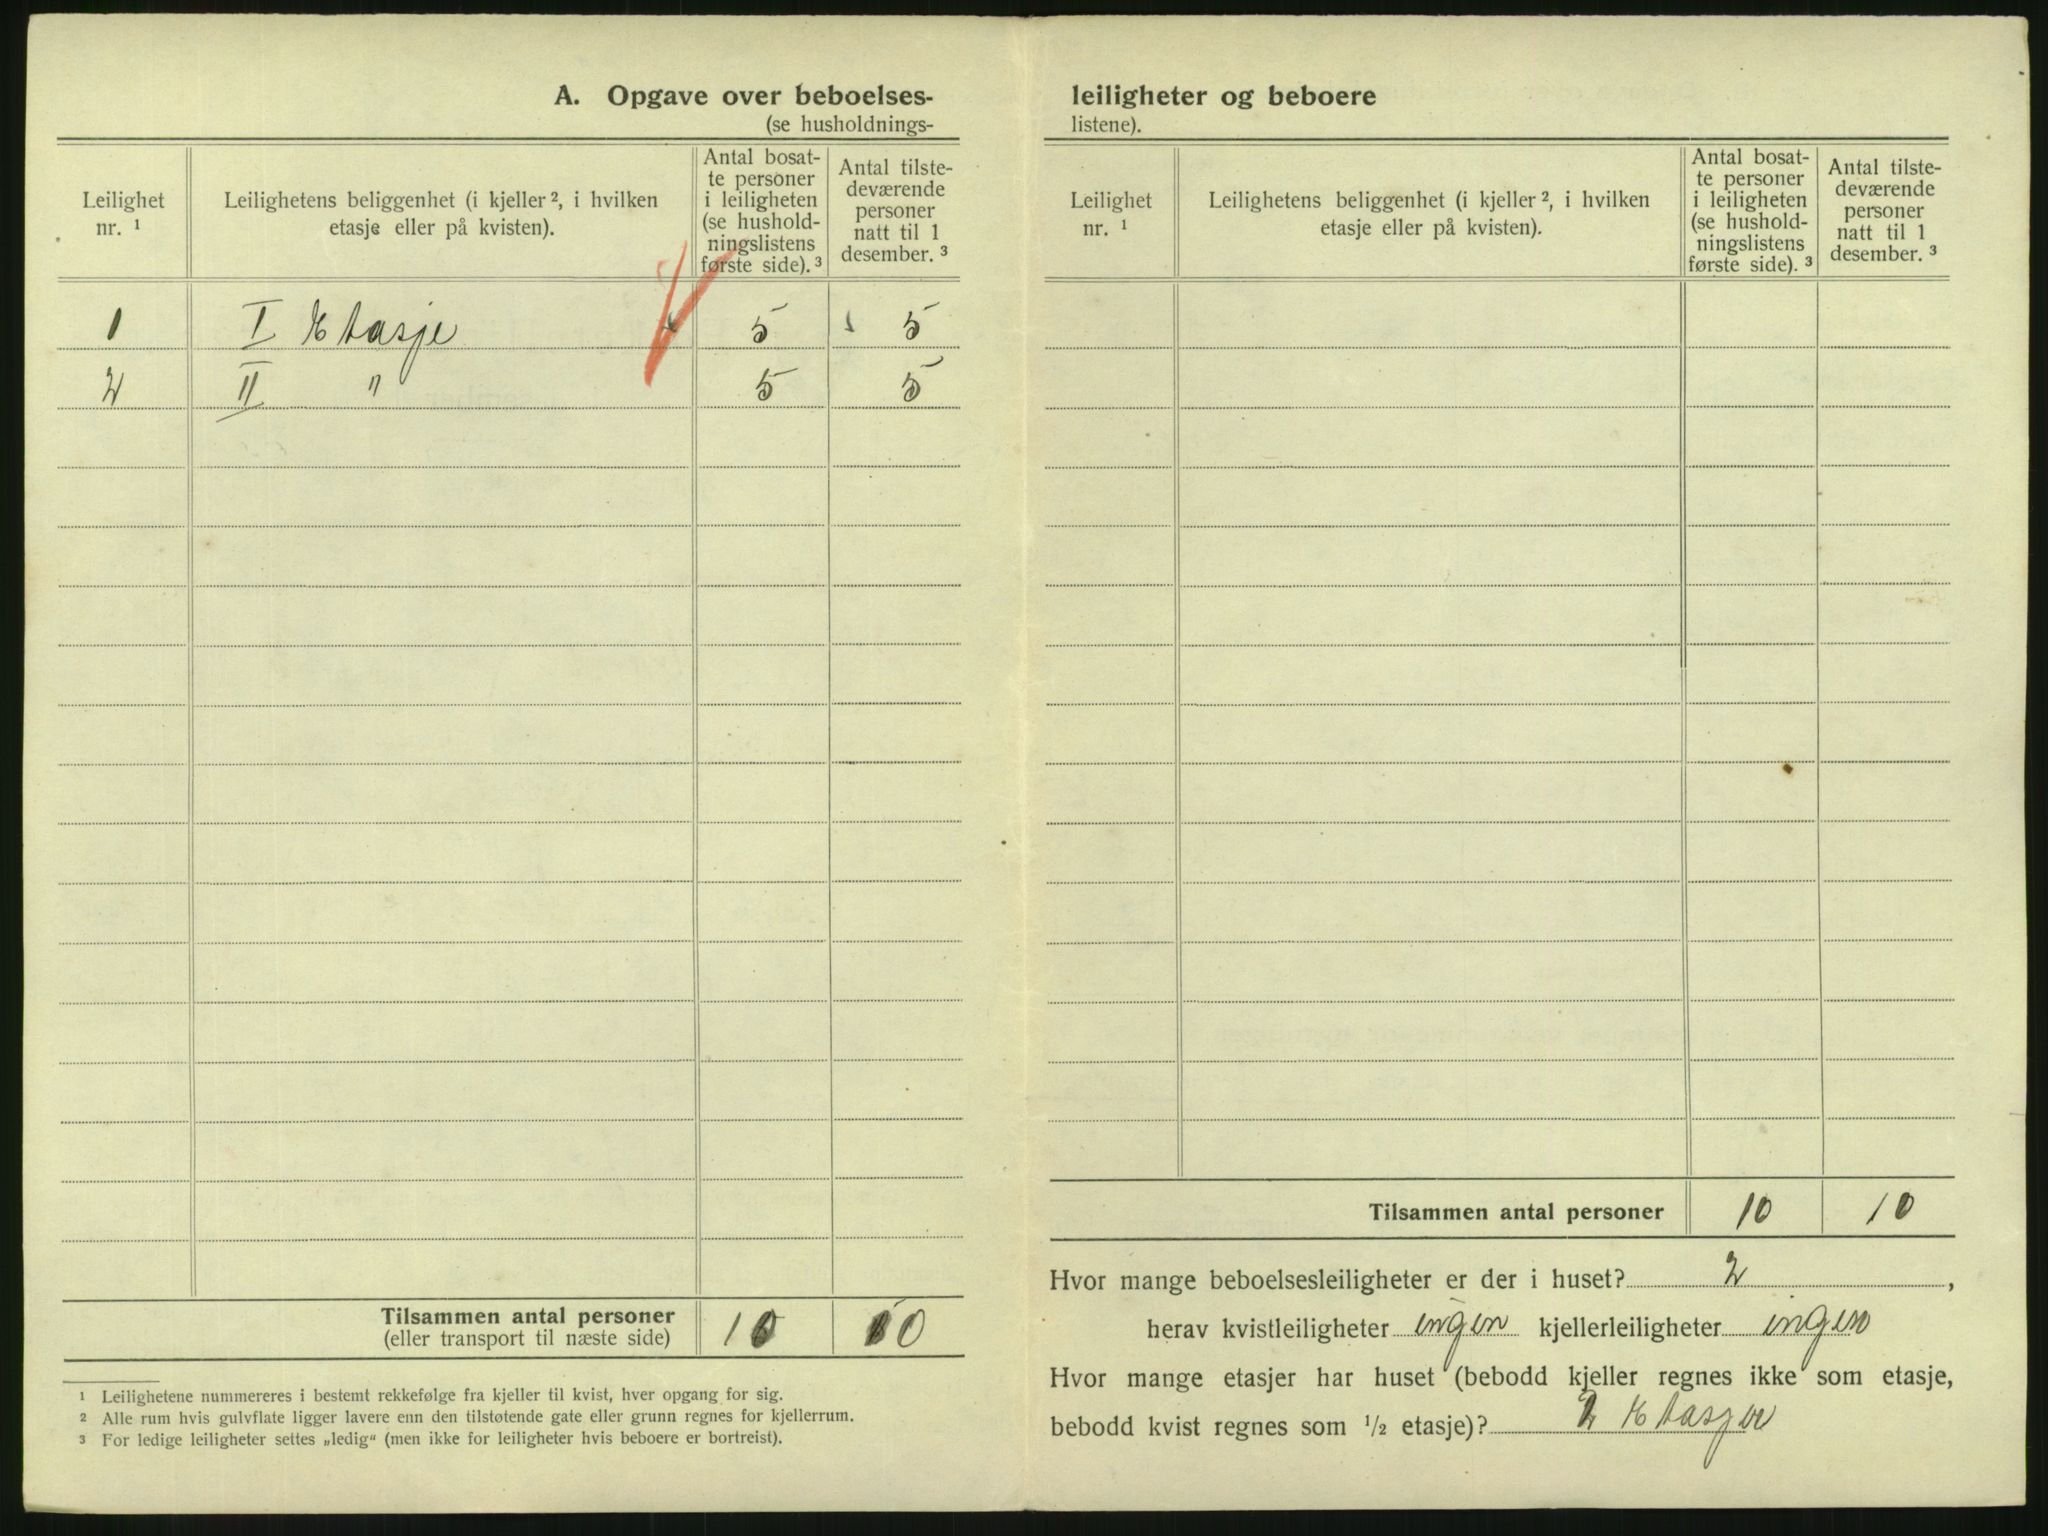 A. Opgave over beboelses-
(se husholdnings-
Leilighet
nr. 1
Leilighetens beliggenhet (i kjeller 2, i hvilken
etasje eller på kvisten).
Antal bosat-
te personer
i leiligheten
(se hushold-
ningslistens
første side). 3
Antal tilste-
deværende
personer
natt til 1
desember. 3
1 I Etasje 5 5
2 II " 5 5
Tilsammen antal personer
(eller transport til næste side) 10 10
1 Leilighetene nummereres i bestemt rekkefølge fra kjeller til kvist, hver opgang for sig.
2 Alle rum hvis gulvflate ligger lavere enn den tilstøtende gate eller grunn regnes for kjellerrum.
3 For ledige leiligheter settes „ledig“ (men ikke for leiligheter hvis beboere er bortreist).
leiligheter og beboere
listene).
Leilighet
nr. 1
Leilighetens beliggenhet (i kjeller 2, i hvilken
etasje eller på kvisten).
Antal bosat-
te personer
i leiligheten
(se hushold-
ningslistens
første side). 3
Antal tilste-
deværende
personer
natt til 1
desember. 3
Tilsammen antal personer 10 10
Hvor mange beboelsesleiligheter er der i huset? 2 ,
herav kvistleiligheter ingen kjellerleiligheter ingen
Hvor mange etasjer har huset (bebodd kjeller regnes ikke som etasje,
bebodd kvist regnes som 1/2 etasje)? 2 Etasjer